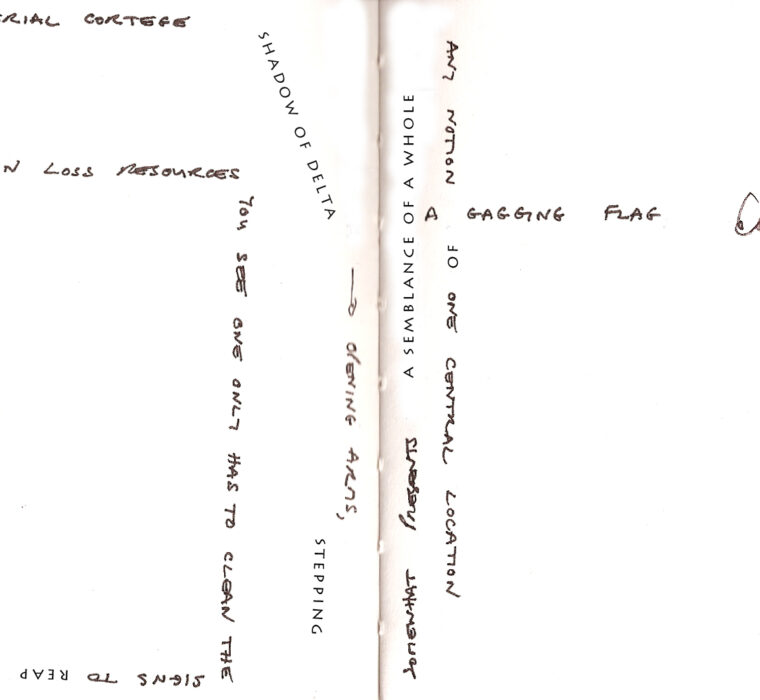 ERIAL CORTEGE
N LOSS RESOURCES
YOU SEE ONE ONLY HAS TO CLEAN THE
SIGNS TO REAP
SHADOW OF DELTA
→ OPENING ARMS,
STEPPING
SOMEWHAT PRESENTS A SEMBLANCE OF A WHOLE
ANY NOTION OF ONE CENTRAL LOCATION
A GAGGING FLAG